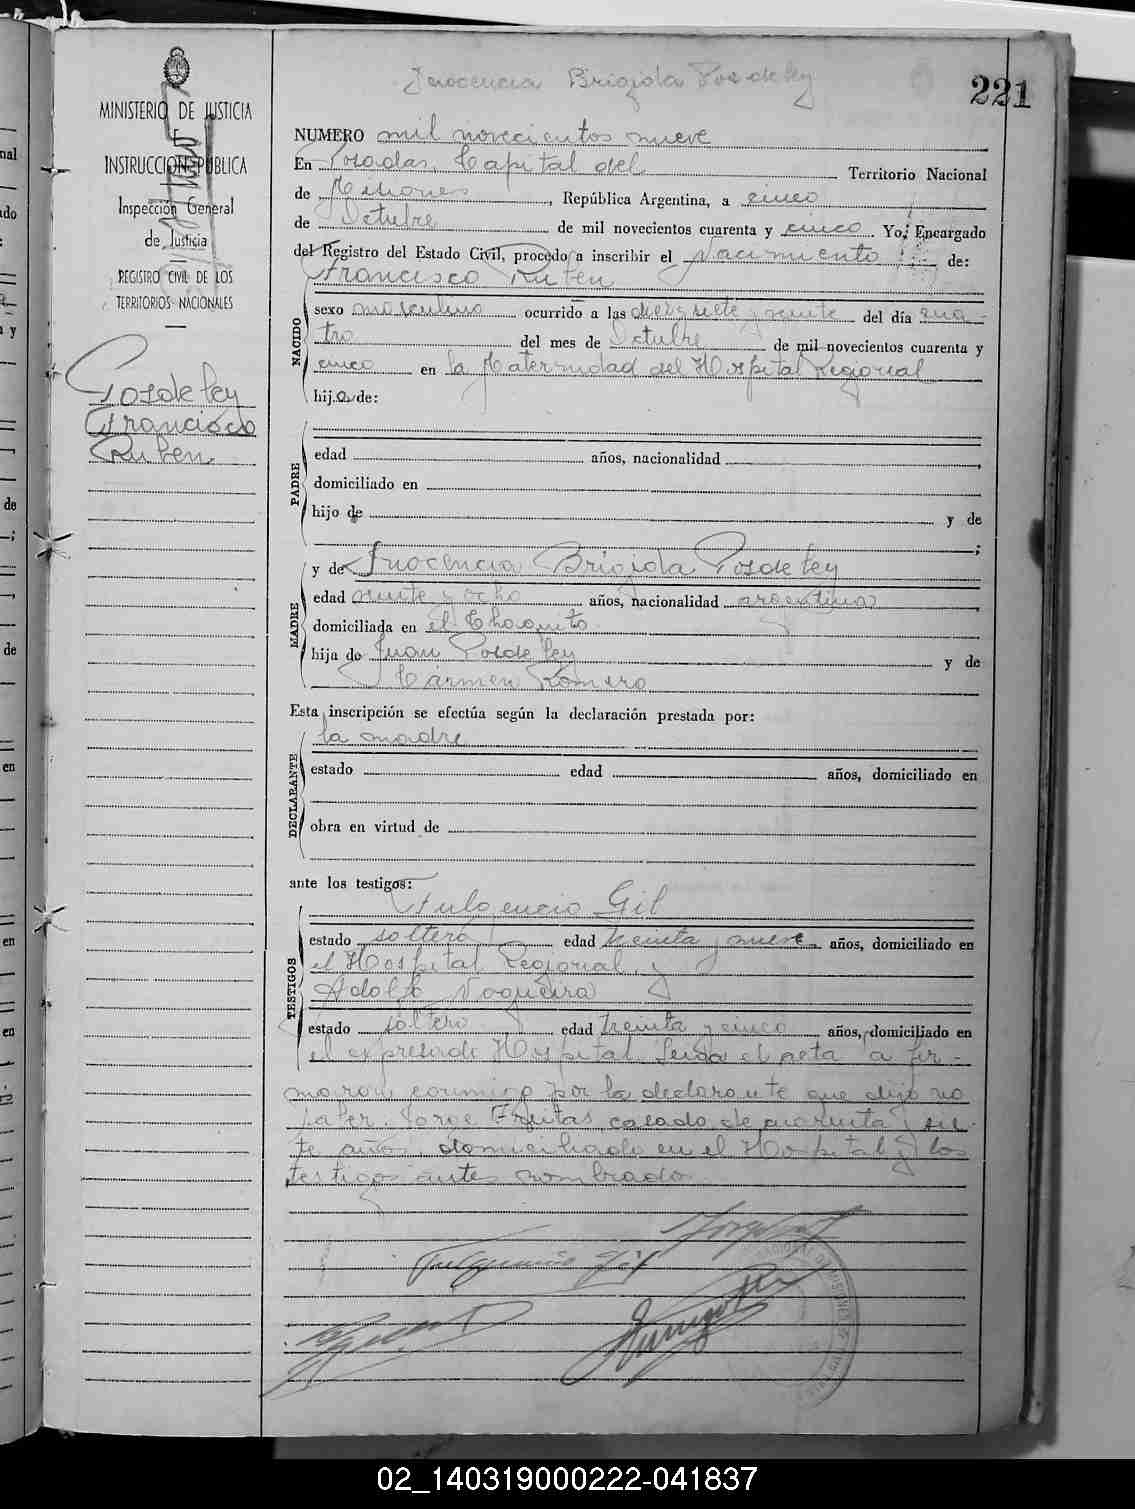 Inocencia Brigida Posdeley
221
MINISTERIO DE JUSTICIA
E
INSTRUCCION PUBLICA
Inspección General
de Justicia
REGISTRO CIVIL DE LOS
TERRITORIOS NACIONALES
Posdeley
Francisco
Ruben
NUMERO mil novecientos nueve
En Posadas, Capital del Territorio Nacional
de Misiones, República Argentina, a cinco
de Octubre de mil novecientos cuarenta y cinco Yo, Encargado
del Registro del Estado Civil, procedo a inscribir el Nacimiento de:
Francisco Ruben
NACIDO
sexo masculino ocurrido a las diez y siete y veinte del día cua-
tro del mes de Octubre de mil novecientos cuarenta y
cinco en la Maternidad del Hospital Regional
hijo de:
PADRE
edad años, nacionalidad
domiciliado en
hijo de y de
;
MADRE
y de Inocencia Brigida Posdeley
edad veinte y ocho años, nacionalidad argentina
domiciliada en el Chaquito
hija de Juan Posdeley y de
Carmen Romero
Esta inscripción se efectúa según la declaración prestada por:
la madre
DECLARANTE
estado edad años, domiciliado en
obra en virtud de
ante los testigos:
Fulgencio Gil
TESTIGOS
estado soltero edad treinta y nueve años, domiciliado en
el Hospital Regional, y
Adolfo Nogueira
estado soltero edad treinta y cinco años, domiciliado en
el expresado Hospital. Leida el acta a fir-
maron conmigo por la declarante que dijo no
saber, Jorge Freitas casado de cuarenta y sie-
te años, domiciliado en el Hospital y los
testigos antes nombrados.
Fulgencio Gil
02_140319000222-041837